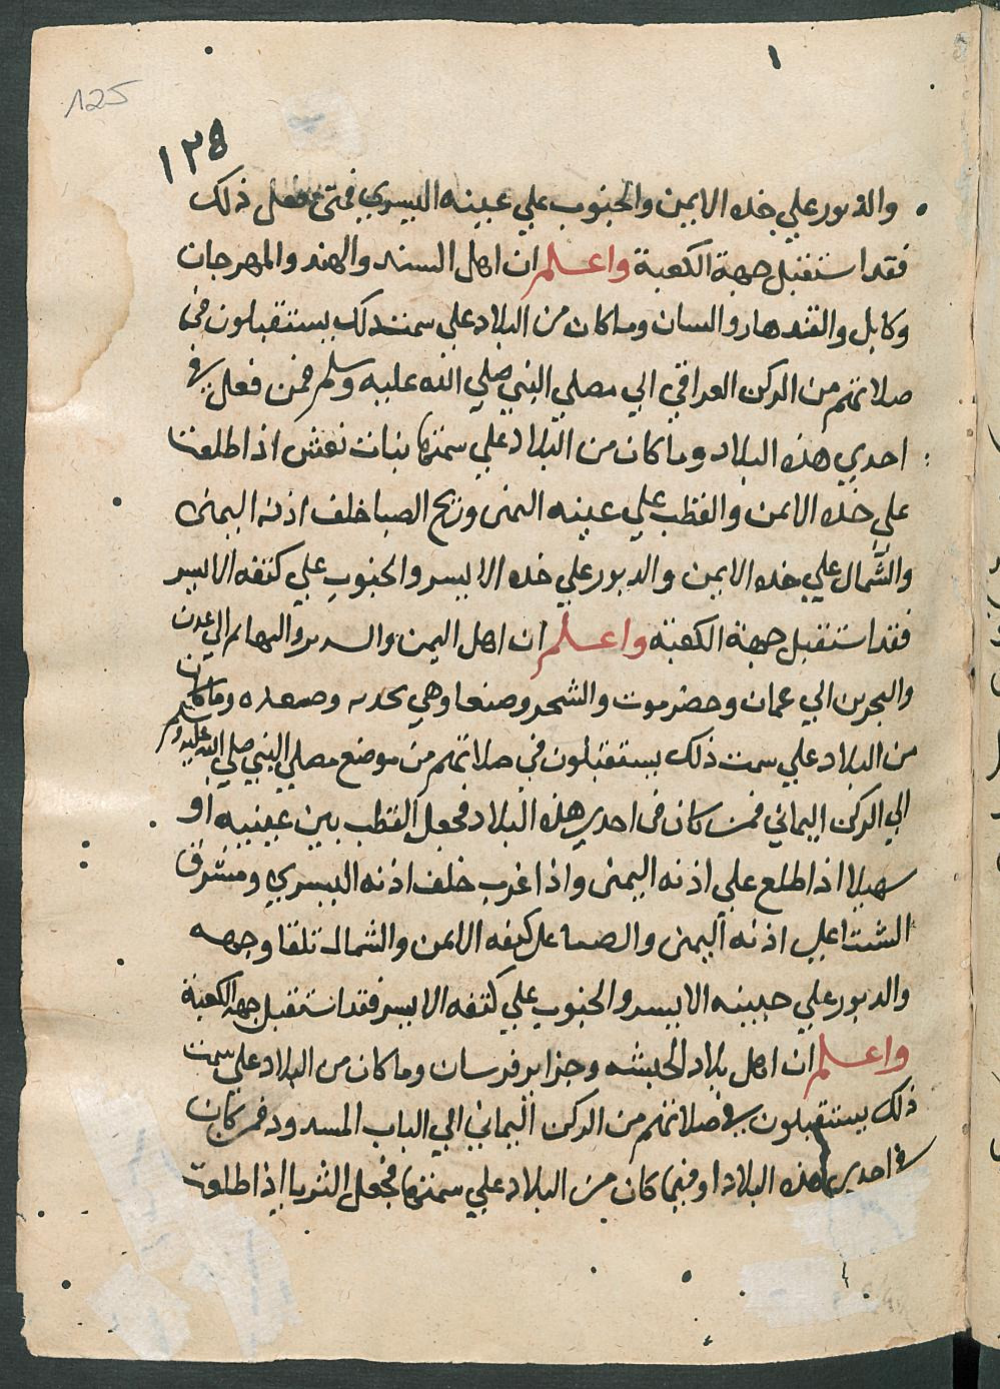 125
١٢٥
والدبور علي خده الايمن والجنوب علي عينه اليسري فمتي فعل ذلك
فقد استقبل جهة الكعبة واعلم ان اهل السند والهند والمهرجان
وكابل والقندهار والسان وما كان من البلاد علي سمت ذلك يستقبلون في
صلاتهم من الركن العراقي الي مصلي النبي صلي الله عليه وسلم فمن فعل في
احدي هذه البلاد وما كان من البلاد علي سمتها بنات نعش اذا طلعت
علي خده الايمن والقطب علي عينه اليمنى وريح الصبا خلف اذنه اليمنى
والشمال علي خده الايمن والدبور علي خده الايسر والجنوب علي كتفه الايسر
فقد استقبل جهة الكعبة واعلم ان اهل اليمن والتهايم الي عدن
والبحرين الي عمان وحضرموت والشحر وصنعا وهي وصعده وما كان
من البلاد علي سمت ذلك يستقبلون في صلاتهم من موضع مصلي النبي صلي الله عليه وسلم
الي الركن اليماني فمن كان في احدي هذه البلاد فجعل القطب بين عينيه او
سهيلا اذا طلع علي اذنه اليمنى واذا غرب خلف اذنه اليسري ومشرق
الشتا علي اذنه اليمنى والصبا علي كتفه الايمن والشمال تلقا وجهه
والدبور علي جبينه الايسر والجنوب علي كتفه الايسر فقد استقبل جهة الكعبة
واعلم ان اهل بلاد الحبشه وجزاير فرسان وما كان من البلاد علي سمت
ذلك يستقبلون في صلاتهم من الركن اليماني الي الباب المسدود فمن كان
في احدي هذه البلاد او فيما كان من البلاد علي سمتها فجعل الثريا اذا طلعت